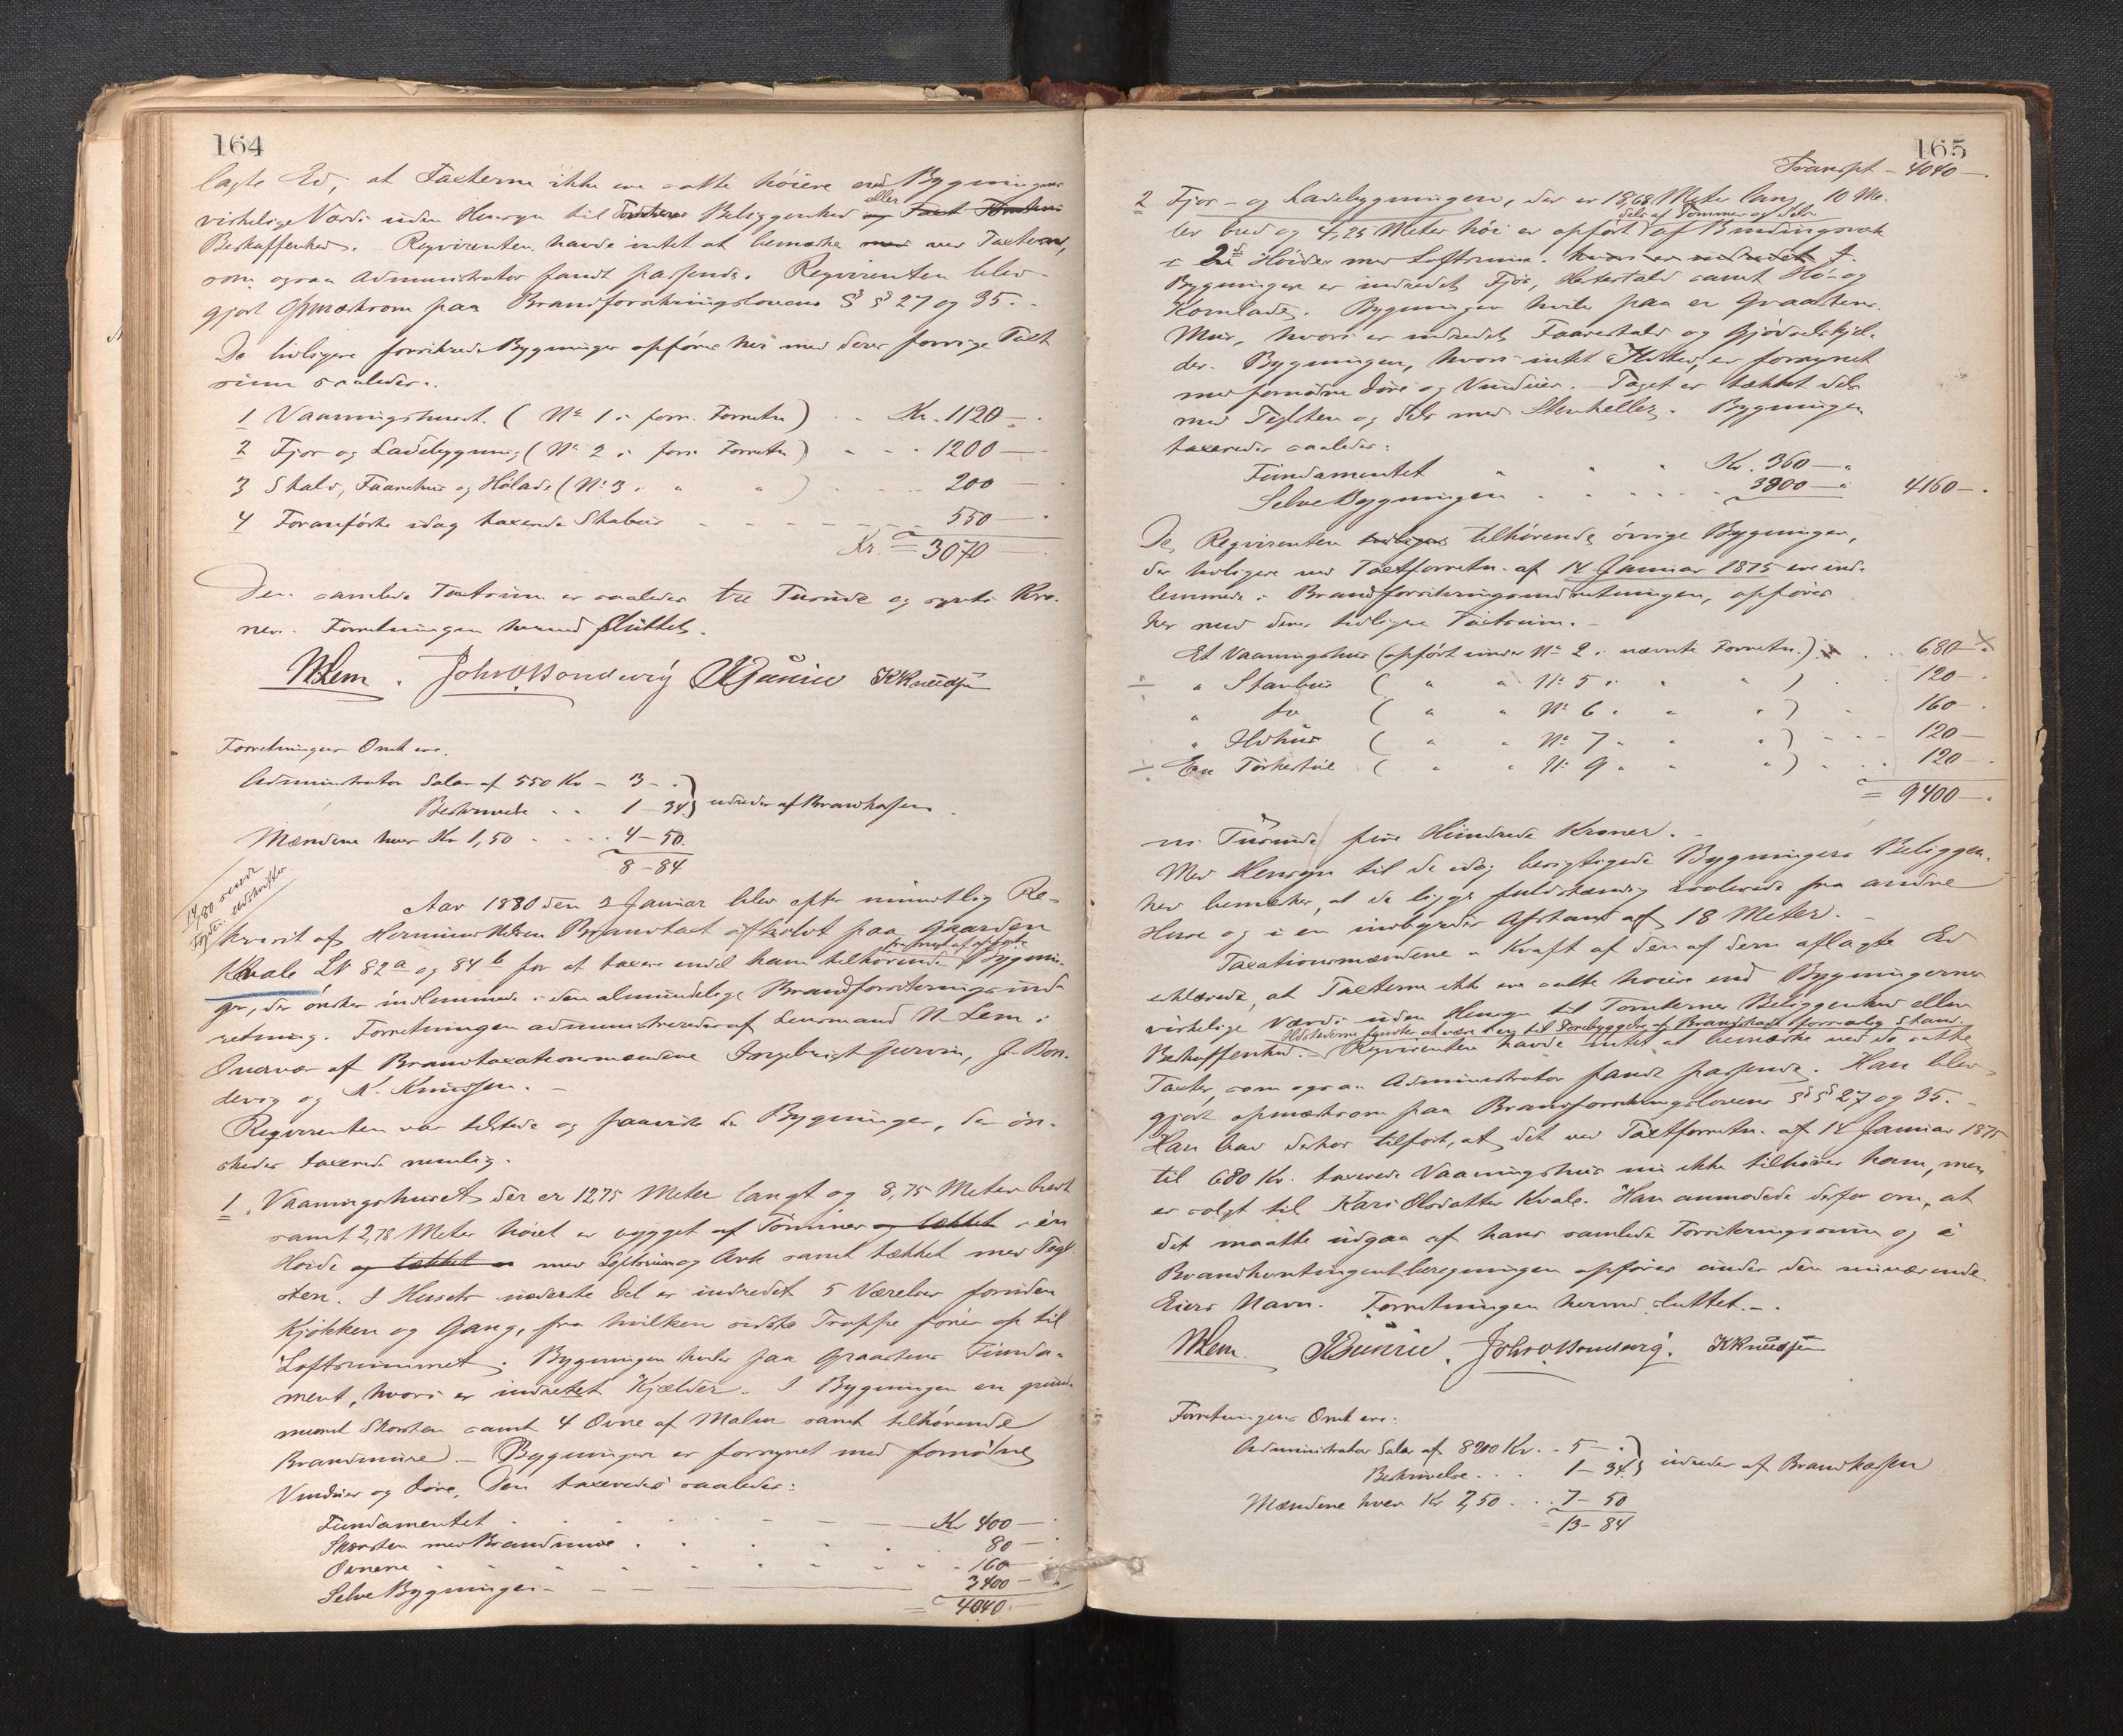 164
lagte Ed, at Taxterne ikke ere satte høiere end Bygningens
virkelige Værdi uden Hensyn til Tomternes Beliggenhed eller
Beskaffenhed. – Reqvirenten havde intet at bemærke ved Taxterne,
som ogsaa Administrator fandt passende. Reqvirenten blev
gjort opmærksom paa Brandforsikringslovens §§ 27 og 35. –
De tidligere forsikrede Bygninger opføres her med deres forrige Taxt
sum saaledes:
1 Vaaningshuset (No 1 i forr. Forretn) . . Kr. 1120 –
2 Fjøs og Ladebygning (No 2 i forr. Forretn) - - - 1200 –
3 Stald, Faarehus og Hølade (No 3 " " ) - - - 200 –
4 Foranførte idag taxerede Stabur - - - - - 550 –
Kr. = 3070 –
Den samlede Taxtsum er saaledes tre Tusinde og sytti Kro-
ner. Forretningen hermed sluttet.
NLem. John O Bondevig IGurvin KKnudsen
Forretningens Omk ere.
Administrator Salar af 550 Kr – 3 – .
Beskrivelse . . 1 – 34 } udredes af Brandkassen.
Mændene hver Kr 1,50 - - - 4 – 50.
8 – 84
Aar 1880 den 2 Januar blev efter mundtlig Re-
kvisit af Hermund Nilsen Brandtaxt afholdt paa Gaarden
Kvale LN 82a og 84b for at taxere endel ham tilhørende Bygnin-
ger, der ønskes indlemmede i den almindelige Brandforsikringsind-
retning. Forretningen administreredes af Lensmand N. Lem i
Overvær af Brandtaxationsmændene Ingebrigt Gurvin, J. Bon-
devig og K. Knudsen. –
Reqvirenten var tilstede og paaviste de Bygninger, der øn-
skedes taxerede nemlig.
1. Vaaningshuset, der er 12,75 Meter langt og 8,75 Meter bredt
samt 2,78 Meter høiet er bygget af Tømmer og tækket i én
Høide og tækket med Loftsrum og Ark samt tækket med Tegl-
sten. I Husets nederste Del er indredet 5 Værelser foruden
Kjøkken og Gang, fra hvilken sidste Trappe fører op til
Loftsrummet. Bygningen hviler paa Graastens Funda-
ment, hvori er indredet Kjælder. I Bygningen en grund-
muret Skorsten samt 4 Ovne af Malm samt tilhørende
Brandmure. – Bygningen er forsynet med fornødne
Vinduer og Døre. Den taxeredes saaledes:
Fundamentet - - - - Kr 400 –
Skorsten med Brandmure . . . . 80 –
Ovnene - - - - - 160 –
Selve Bygningen - - - - 3400 –
= 4040 –
165
Transpt – 4040 –
2 Fjøs- og Ladebygningen, der er 18,68 Meter lang, 10 Me-
dels af Tømmer og dels
ter bred og 4,25 Meter høi er opført af Bindingsværk
i 2de Høider med Loftsrum. hvori er indredet I
Bygningen er indredet Fjøs, Hestestald samt Hø- og
Kornlade. Bygningen hviler paa en Graastens-
Mur, hvori er indredet Faarestald og Gjødselskjel-
der. Bygningen, hvori intet Ildsted, er forsynet
med fornødne Døre og Vinduer. – Taget er tækket dels
med Teglsten og dels med Stenheller. Bygningen
taxeredes saaledes:
Fundamentet " " " Kr. 360 –
Selve Bygningen . . . . . 3800 – 4160 –
De Reqvirenten tidligere tilhørende øvrige Bygninger,
der tidligere ved Taxtforretn. af 14 Januar 1875 ere ind-
lemmede i Brandforsikringsindretningen, opføres
her med deres tidligere Taxtsum. –
Et Vaaningshus (opført under No 2 i nævnte Forretn.) . . 680 –
÷ " Stabur ( " " No 5 " " ) . . 120 –
" do ( " " No 6 " " ) . 160 –
" Ildhus ( " " No 7 " " ) - - - 120 –
÷ En Tørkestue ( " " No 9 " " ) . . 120 –
= 9400 –
ni Tusinde fire Hundrede Kroner. –
Med Hensyn til de idag besigtigede Bygningers Beliggen-
hed bemærkes, at de ligge fuldstændig isolerede fra andre
Huse og i en indbyrdes Afstand af 18 Meter. –
Taxationsmændene i Kraft af den af dem aflagte Ed
erklærede, at Taxterne ikke ere satte høiere end Bygningernes
virkelige Værdi uden Hensyn til Tomternes Beliggenhed eller
Beskaffenhed. – Reqvirenten havde intet at bemærke ved de satte
Taxter, som ogsaa Administrator fandt passende. Han blev
gjort opmærksom paa Brandforsikringslovens §§ 27 og 35. –
Han har derhos tilført, at det ved Taxtforretn. af 14 Januar 1875
til 680 Kr. taxerede Vaaningshus nu ikke tilhører ham, men
er solgt til Kari Olsdatter Kvale. Han anmodede derfor om, at
det maatte udgaa af hans samlede Forsikringssum og i
Brandkontingentberegningen opføres under den nuværende
Eiers Navn. Forretningen hermed sluttet. –
NLem. IGurvin. John O Bondevig. KKnudsen
Forretningens Omk ere:
Administrator Salar af 8200 Kr. . 5 – .
Beskrivelse . . . 1 – 34 } udredes af Brandkassen
Mændene hver Kr 2,50 . . . 7 – 50
= 13 – 84